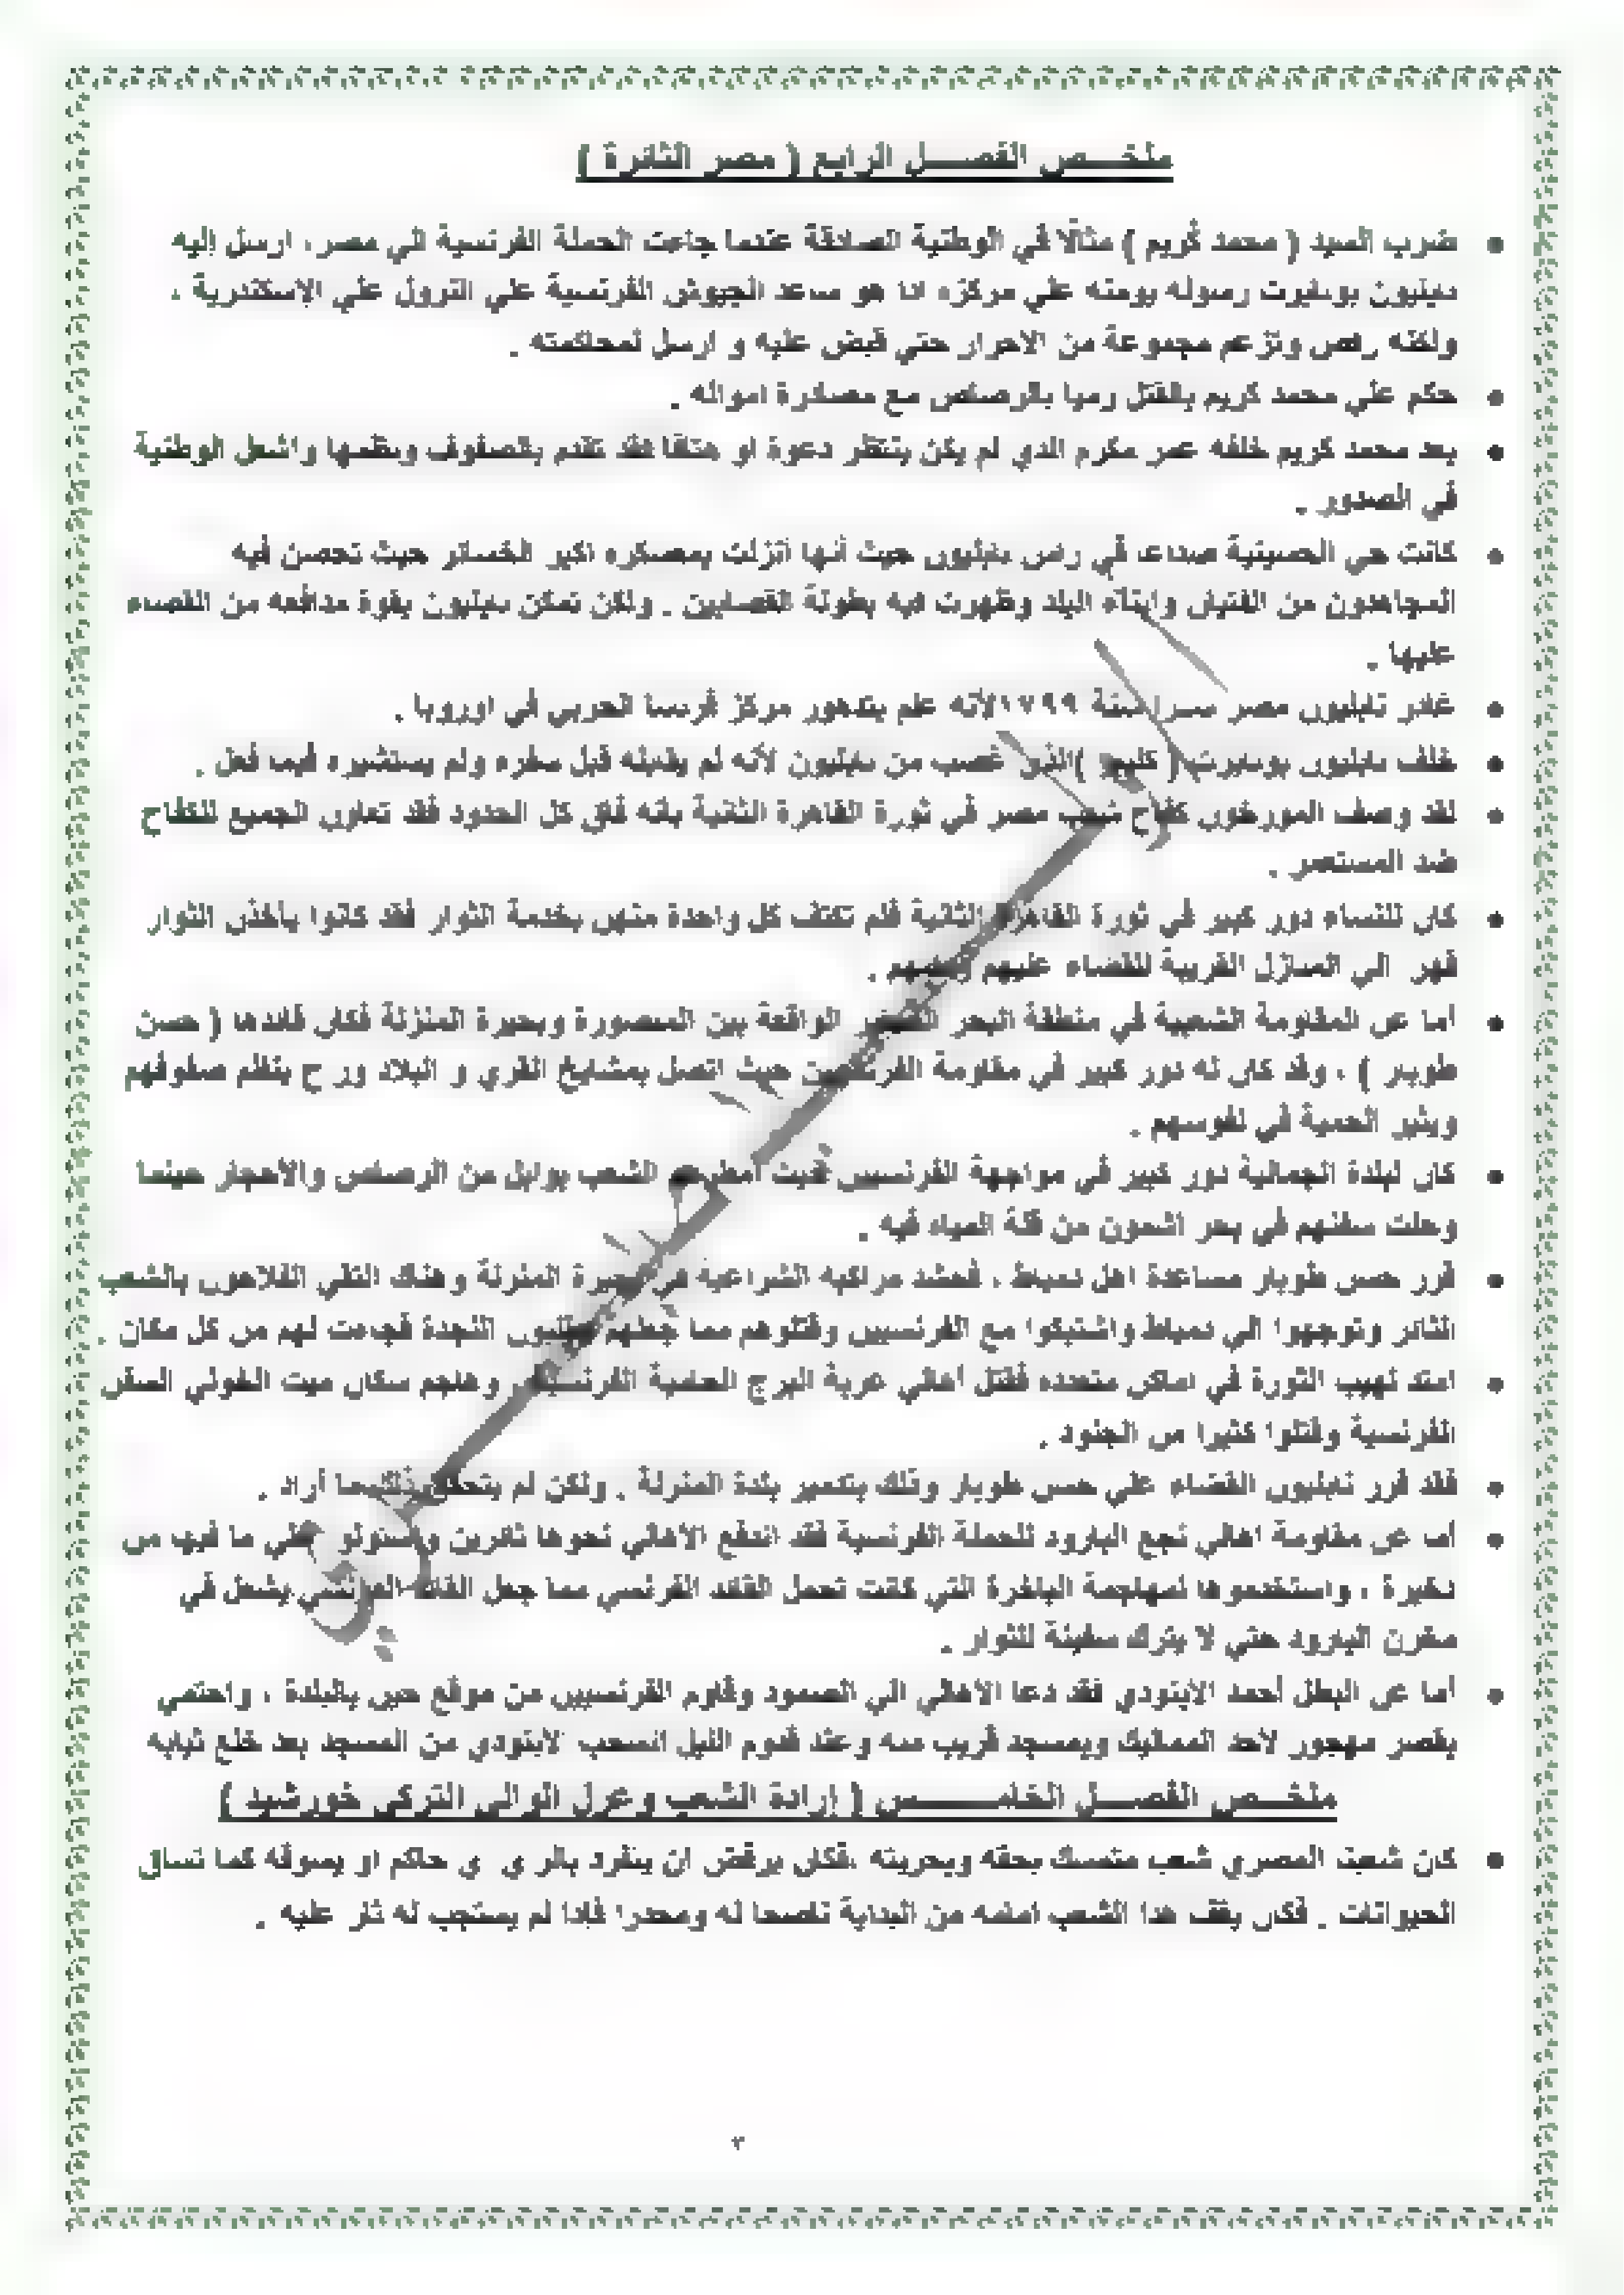 ملخـــص الفصـــل الرابع ( مصر الثائرة )
ضرب السيد ( محمد كُريم ) مثالا في الوطنية الصادقة عندما جاءت الحملة الفرنسية الي مصر، ارسل إليه
نابليون بونابرت رسوله يومنه علي مركزه اذا هو ساعد الجيوش الفرنسية علي النزول علي الإسكندرية ،
ولكنه رفض وتزعم مجموعة من الاحرار حتي قبض عليه و ارسل لمحاكمته .
حكم علي محمد كريم بالقتل رميا بالرصاص مع مصادرة امواله .
بعد محمد كريم خلفه عمر مكرم الذي لم يكن ينتظر دعوة او هتافا فقد تقدم بالصفوف ونظمها واشعل الوطنية
في الصدور .
كانت حي الحسينية صداعا في رأس نابليون حيث أنها أنزلت بمعسكره اكبر الخسائر حيث تحصن فيه
المجاهدون من الفتيان وابناء البلد وظهرت فيه بطولة القصابين . ولكن تمكن نابليون بقوة مدافعه من القضاء
عليها .
غادر نابليون مصر سرا سنة ١٧٩٩ لأنه علم بتدهور مركز فرنسا الحربي في اوروبا .
خلف نابليون بونابرت ( كليبر ) الذي غضب من نابليون لأنه لم يقابله قبل سفره ولم يستشيره فيما فعل .
لقد وصف المورخون كفاح شعب مصر في ثورة القاهرة الثانية بانه فاق كل الحدود فقد تعاون الجميع للكفاح
ضد المستعمر .
كان للنساء دور كبير في ثورة القاهرة الثانية فلم تكتف كل واحدة منهن بخدمة الثوار فقد كانوا يأخذن الثوار
قهر الي المنازل القريبة للقضاء عليهم وقتلهم .
أما عن المقاومة الشعبية في منطقة البحر الصغير الواقعة بين المنصورة وبحيرة المنزلة فكان قائدها ( حسن
طوبار ) ، وقد كان له دور كبير في مقاومة الفرنسيين حيث اتصل بمشايخ القري و البلاد وراح ينظم صفوفهم
ويثير الحمية في نفوسهم .
كان لبلدة الجمالية دور كبير في مواجهة الفرنسيين حيث أمطرهم الشعب بوابل من الرصاص والأحجار حينما
وحلت سفنهم في بحر اشمون من قلة المياه فيه .
قرر حسن طوبار مساعدة اهل دمياط ، فحشد مراكبه الشراعية في بحيرة المنزلة وهناك التقي الفلاحون بالشعب
الثائر وتوجهوا الي دمياط واشتبكوا مع الفرنسيين وقتلوهم مما جعلهم يطلبون النجدة فجاءت لهم من كل مكان .
امتد لهيب الثورة في اماكن متعدده فقتل أهالي عزبة البرج الحامية الفرنسية وهاجم سكان ميت الخولي السفن
الفرنسية وقتلوا كثيرا من الجنود .
فقد قرر نابليون القضاء علي حسن طوبار وذلك بتدمير بلدة المنزلة . ولكن لم يتحقق ذلك ما أراد .
أما عن مقاومة اهالي نجع البارود للحملة الفرنسية فقد اندفع الأهالي نحوها ثائرين واستولو علي ما فيها من
ذخيرة ، واستخدموها لمهاجمة الباخرة التي كانت تحمل القائد الفرنسي مما جعل القائد الفرنسي يشعل في
مخزن البارود حتي لا يترك سفينة للثوار .
أما عن البطل أحمد الابنودي فقد دعا الاهالي الي الصمود وقاوم الفرنسيين من موقع حصين بالبلدة ، واحتمي
بقصر مهجور لأحد المماليك وبمسجد قريب منه وعند قدوم الليل انسحب الابنودي من المسجد بعد خلع ثيابه
ملخـــص الفصـــل الخامـــــس ( إرادة الشعب وعزل الوالي التركي خورشيد )
كان شعبنا المصري شعب متمسك بحقه وبحريته ،فكان يرفض ان ينفرد بالراي اي حاكم او يسوقه كما تساق
الحيوانات . فكان يقف هذا الشعب امامه من البداية ناصحا له ومحذرا فإذا لم يستجب له ثار عليه .
٣